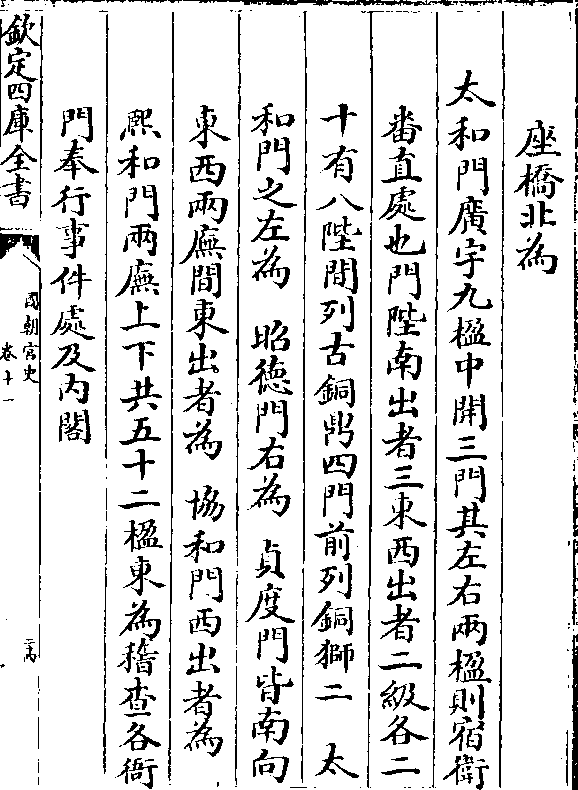 座橋北為
太和門廣宇九楹中開三門其左右兩楹則宿衛
番直處也門陛南出者三東西出者二級各二
十有八陛間列古銅鼎四門前列銅獅二 太
和門之左為 昭德門右為 貞度門皆南向
東西兩廡間東出者為 協和門西出者為
熈和門兩廡上下共五十二楹東為稽查各衙
門奉行事件處及内閣
欽定四庫全書
國朝宮史
卷十一